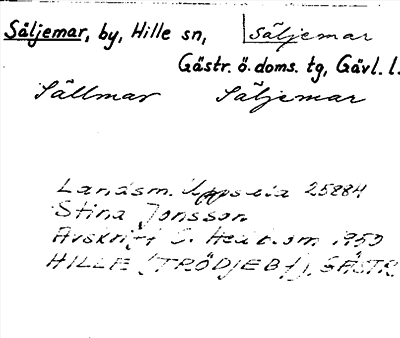 Säljemar, by, Hille sn, Säljemar
Gästr. ö. doms. tg, Gävl. l.
Sällmar Säljemar
Landsm. Uppsala 25884
Stina Jonsson
Avskrift C. Hedblom 1950
HILLE (TRÖDJEBY), GÄSTR